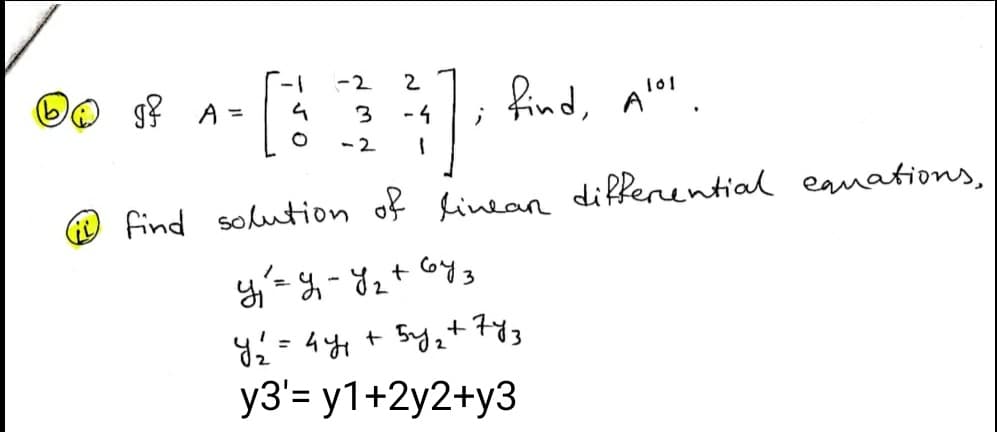 (b) (i) If A = [ -1 -2 2
4 3 -4
0 -2 1 ] ; find, A^101 .
(ii) find solution of linear differential equations,
y₁' = y₁ - y₂ + 6y₃
y₂' = 4y₁ + 5y₂ + 7y₃
y3'= y1+2y2+y3